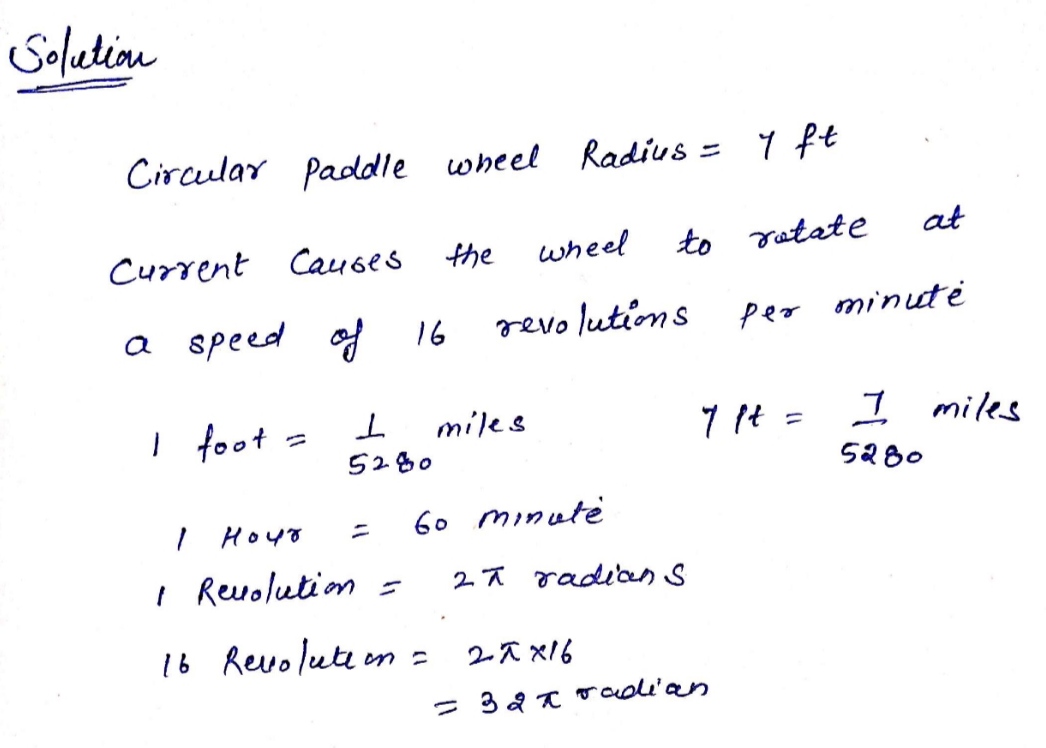 Solution
Circular paddle wheel Radius = 7 ft
Current Causes the wheel to rotate at
a speed of 16 revolutions per minute
1 foot = 1/5280 miles 7 ft = 7/5280 miles
1 Hour = 60 minute
1 Revolution = 2π radians
16 Revolution = 2π×16
= 32π radian